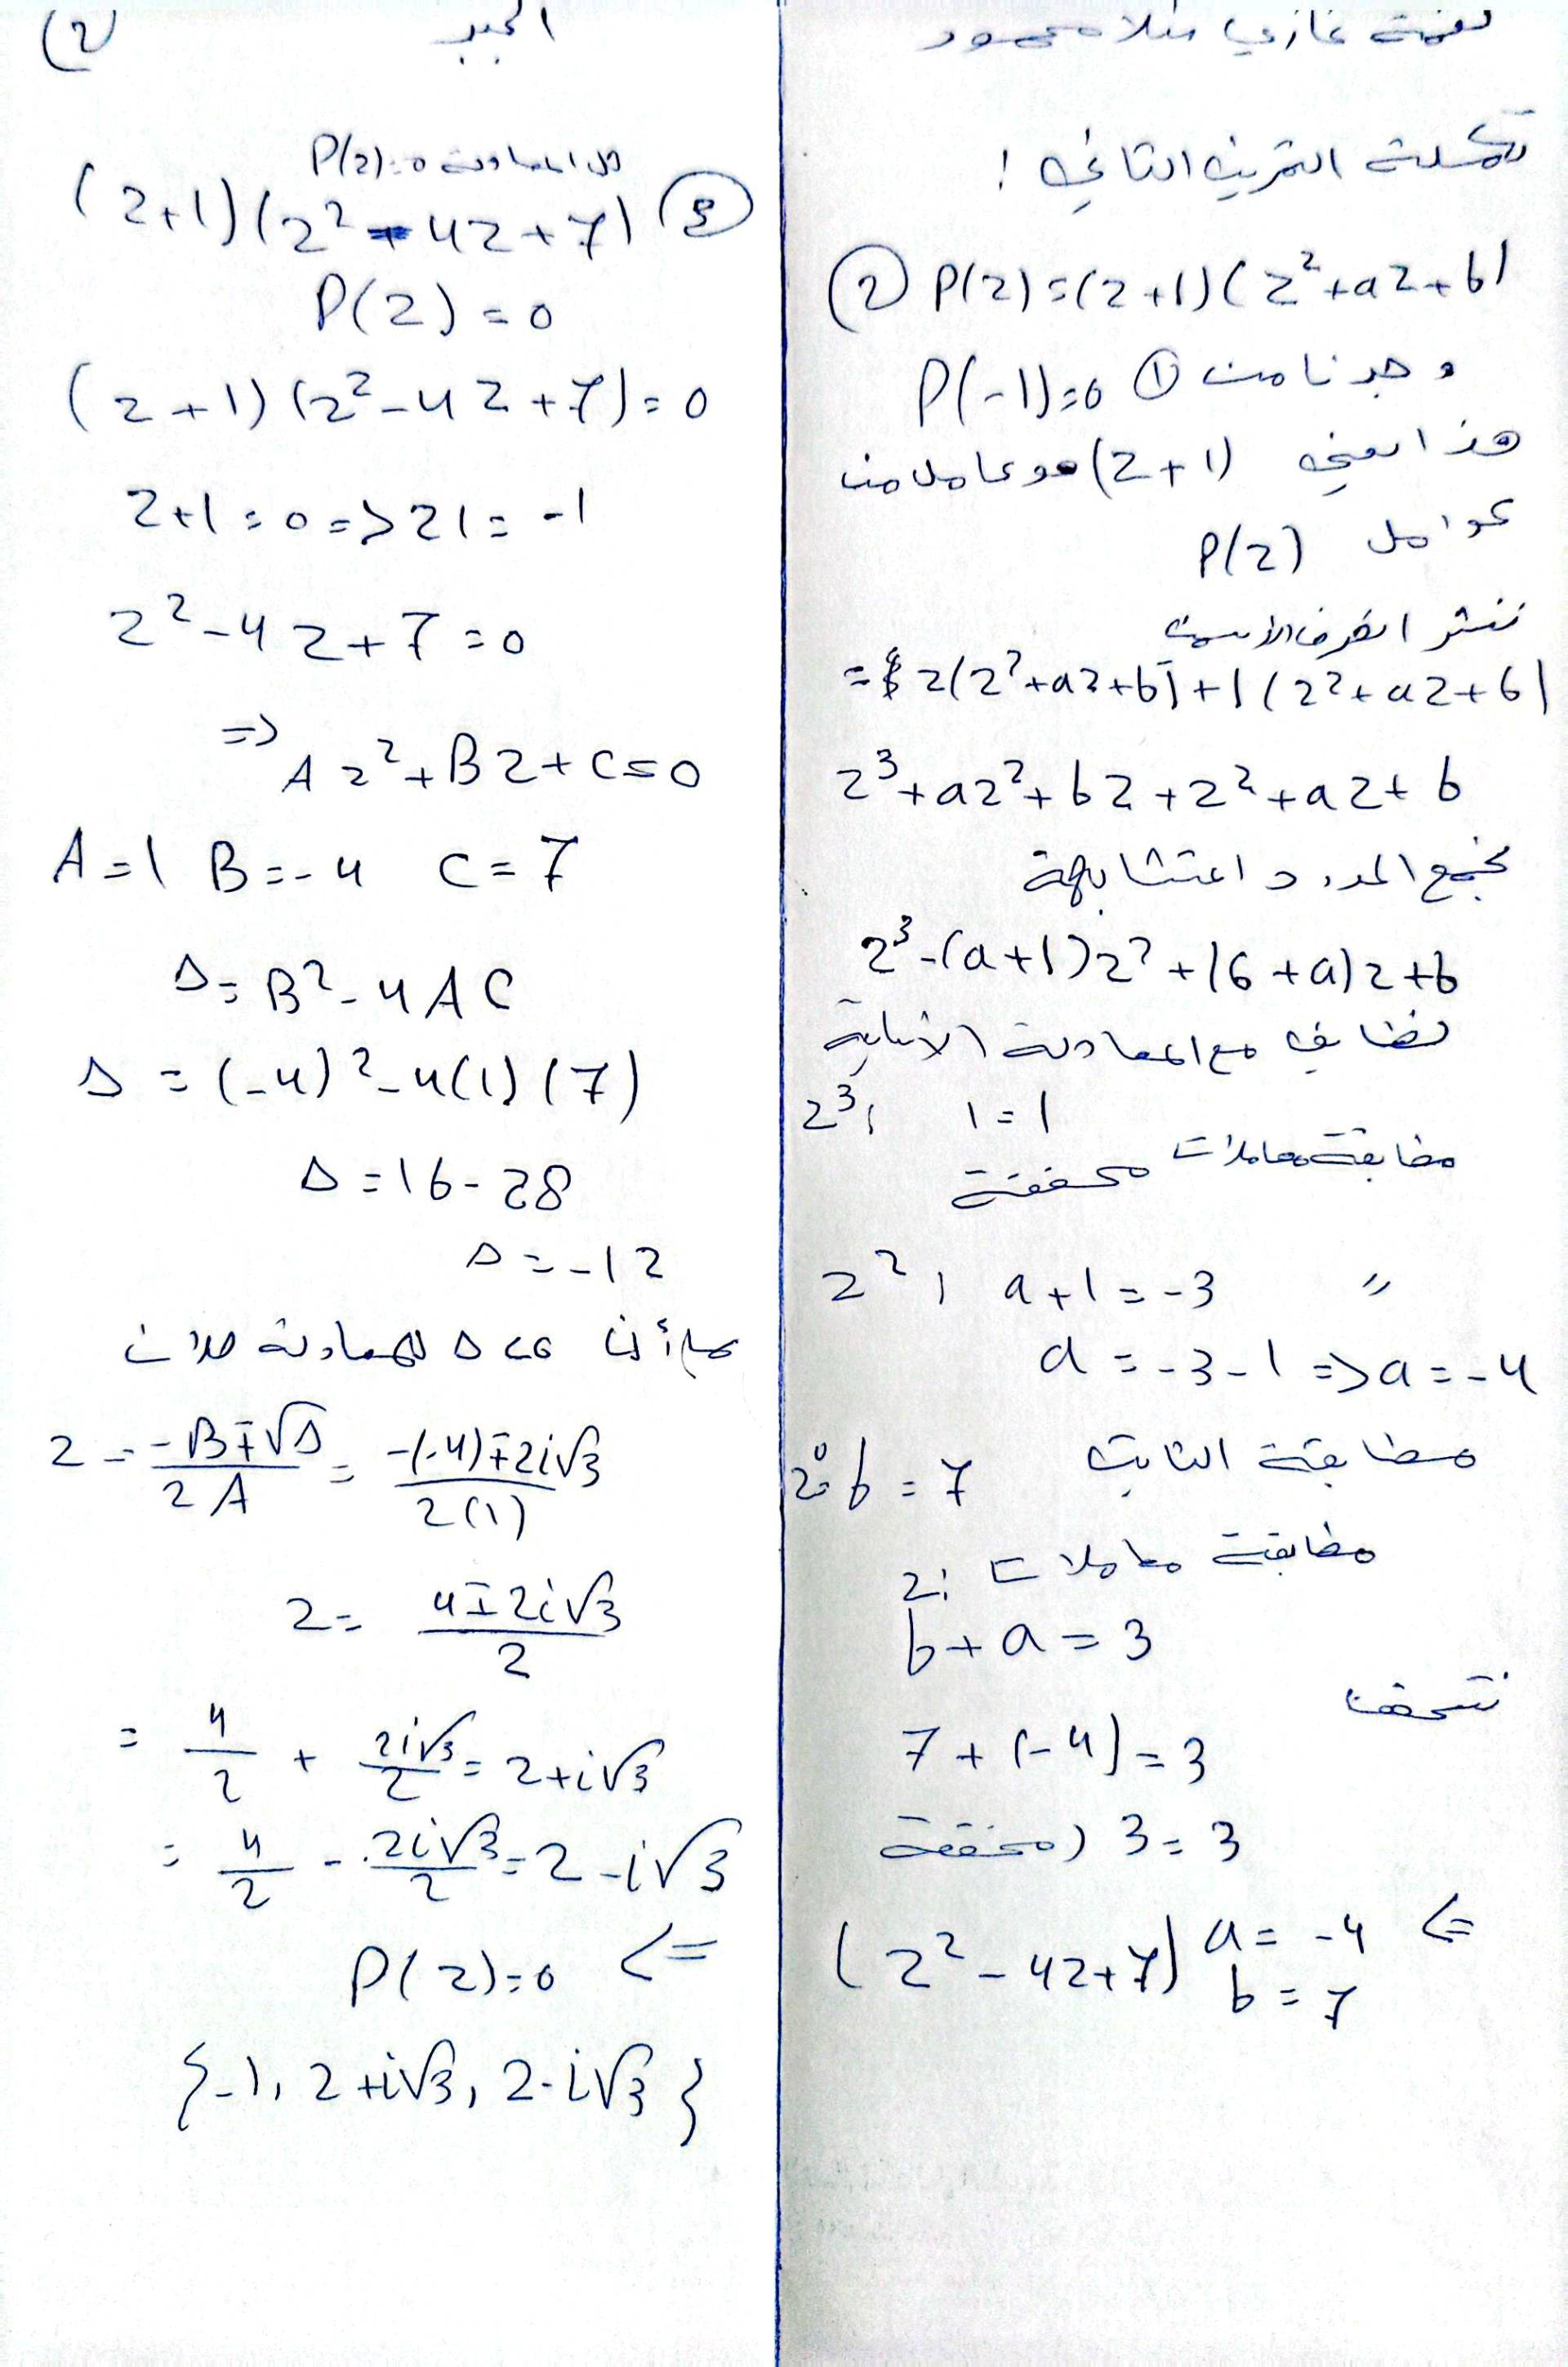 نعمة غازي منلا محمود
تكملة التمرين الثاني :
② P(z)=(z+1)(z²+az+b)
وجدنا من ① P(-1)=0
هذا يعني (z+1) هو عامل من
عوامل P(z)
ننشر الطرف الأيمن
= z(z²+az+b)+1(z²+az+b)
z³+az²+bz+z²+az+b
نجمع الحدود المتشابهة
z³-(a+1)z²+(b+a)z+b
نطابق مع المعادلة الأصلية
z³: 1=1
مطابقة معاملات محققة
z²: a+1=-3 "
a=-3-1 => a=-4
مطابقة الثابت z⁰: b=7
مطابقة معاملات z:
b+a=3
نتحقق
7+(-4)=3
3=3 (محققة
<= a=-4 (z²-4z+7)
b=7
الجبر (2)
حل المعادلة P(z)=0
③ (z+1)(z²-4z+7)
P(z)=0
(z+1)(z²-4z+7)=0
z+1=0=>z1=-1
z²-4z+7=0
=> Az²+Bz+C=0
A=1 B=-4 C=7
Δ=B²-4AC
Δ=(-4)²-4(1)(7)
Δ=16-28
Δ=-12
بما أن Δ<0 للمعادلة حلان
z=(-B∓√Δ)/2A=(-(-4)∓2i√3)/2(1)
z=(4∓2i√3)/2
=4/2+2i√3/2=2+i√3
=4/2-2i√3/2=2-i√3
P(z)=0 <=
{-1, 2+i√3, 2-i√3}